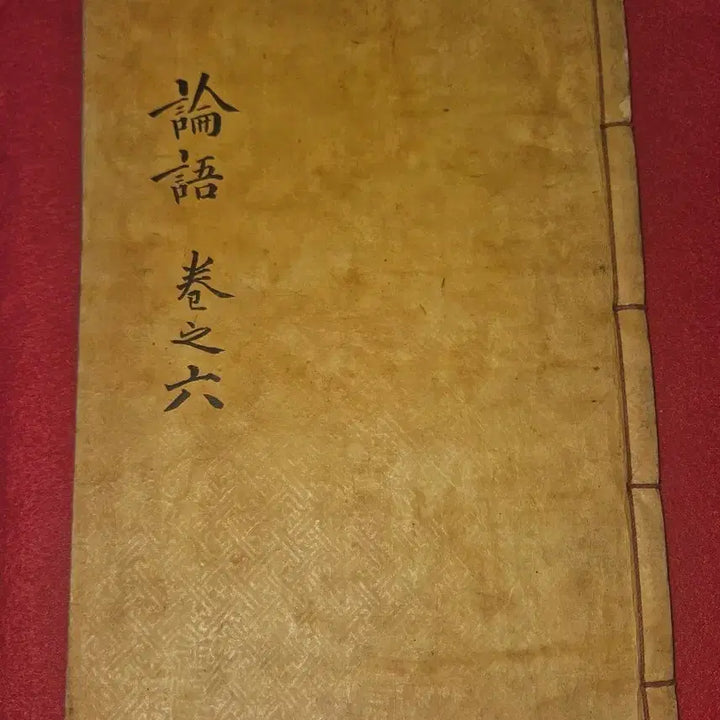 論語 卷之六